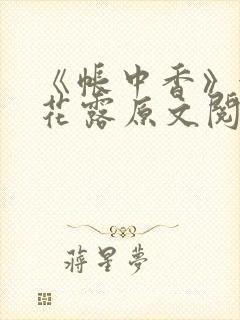 《帐中香》
花露原文阅
蒋星夢